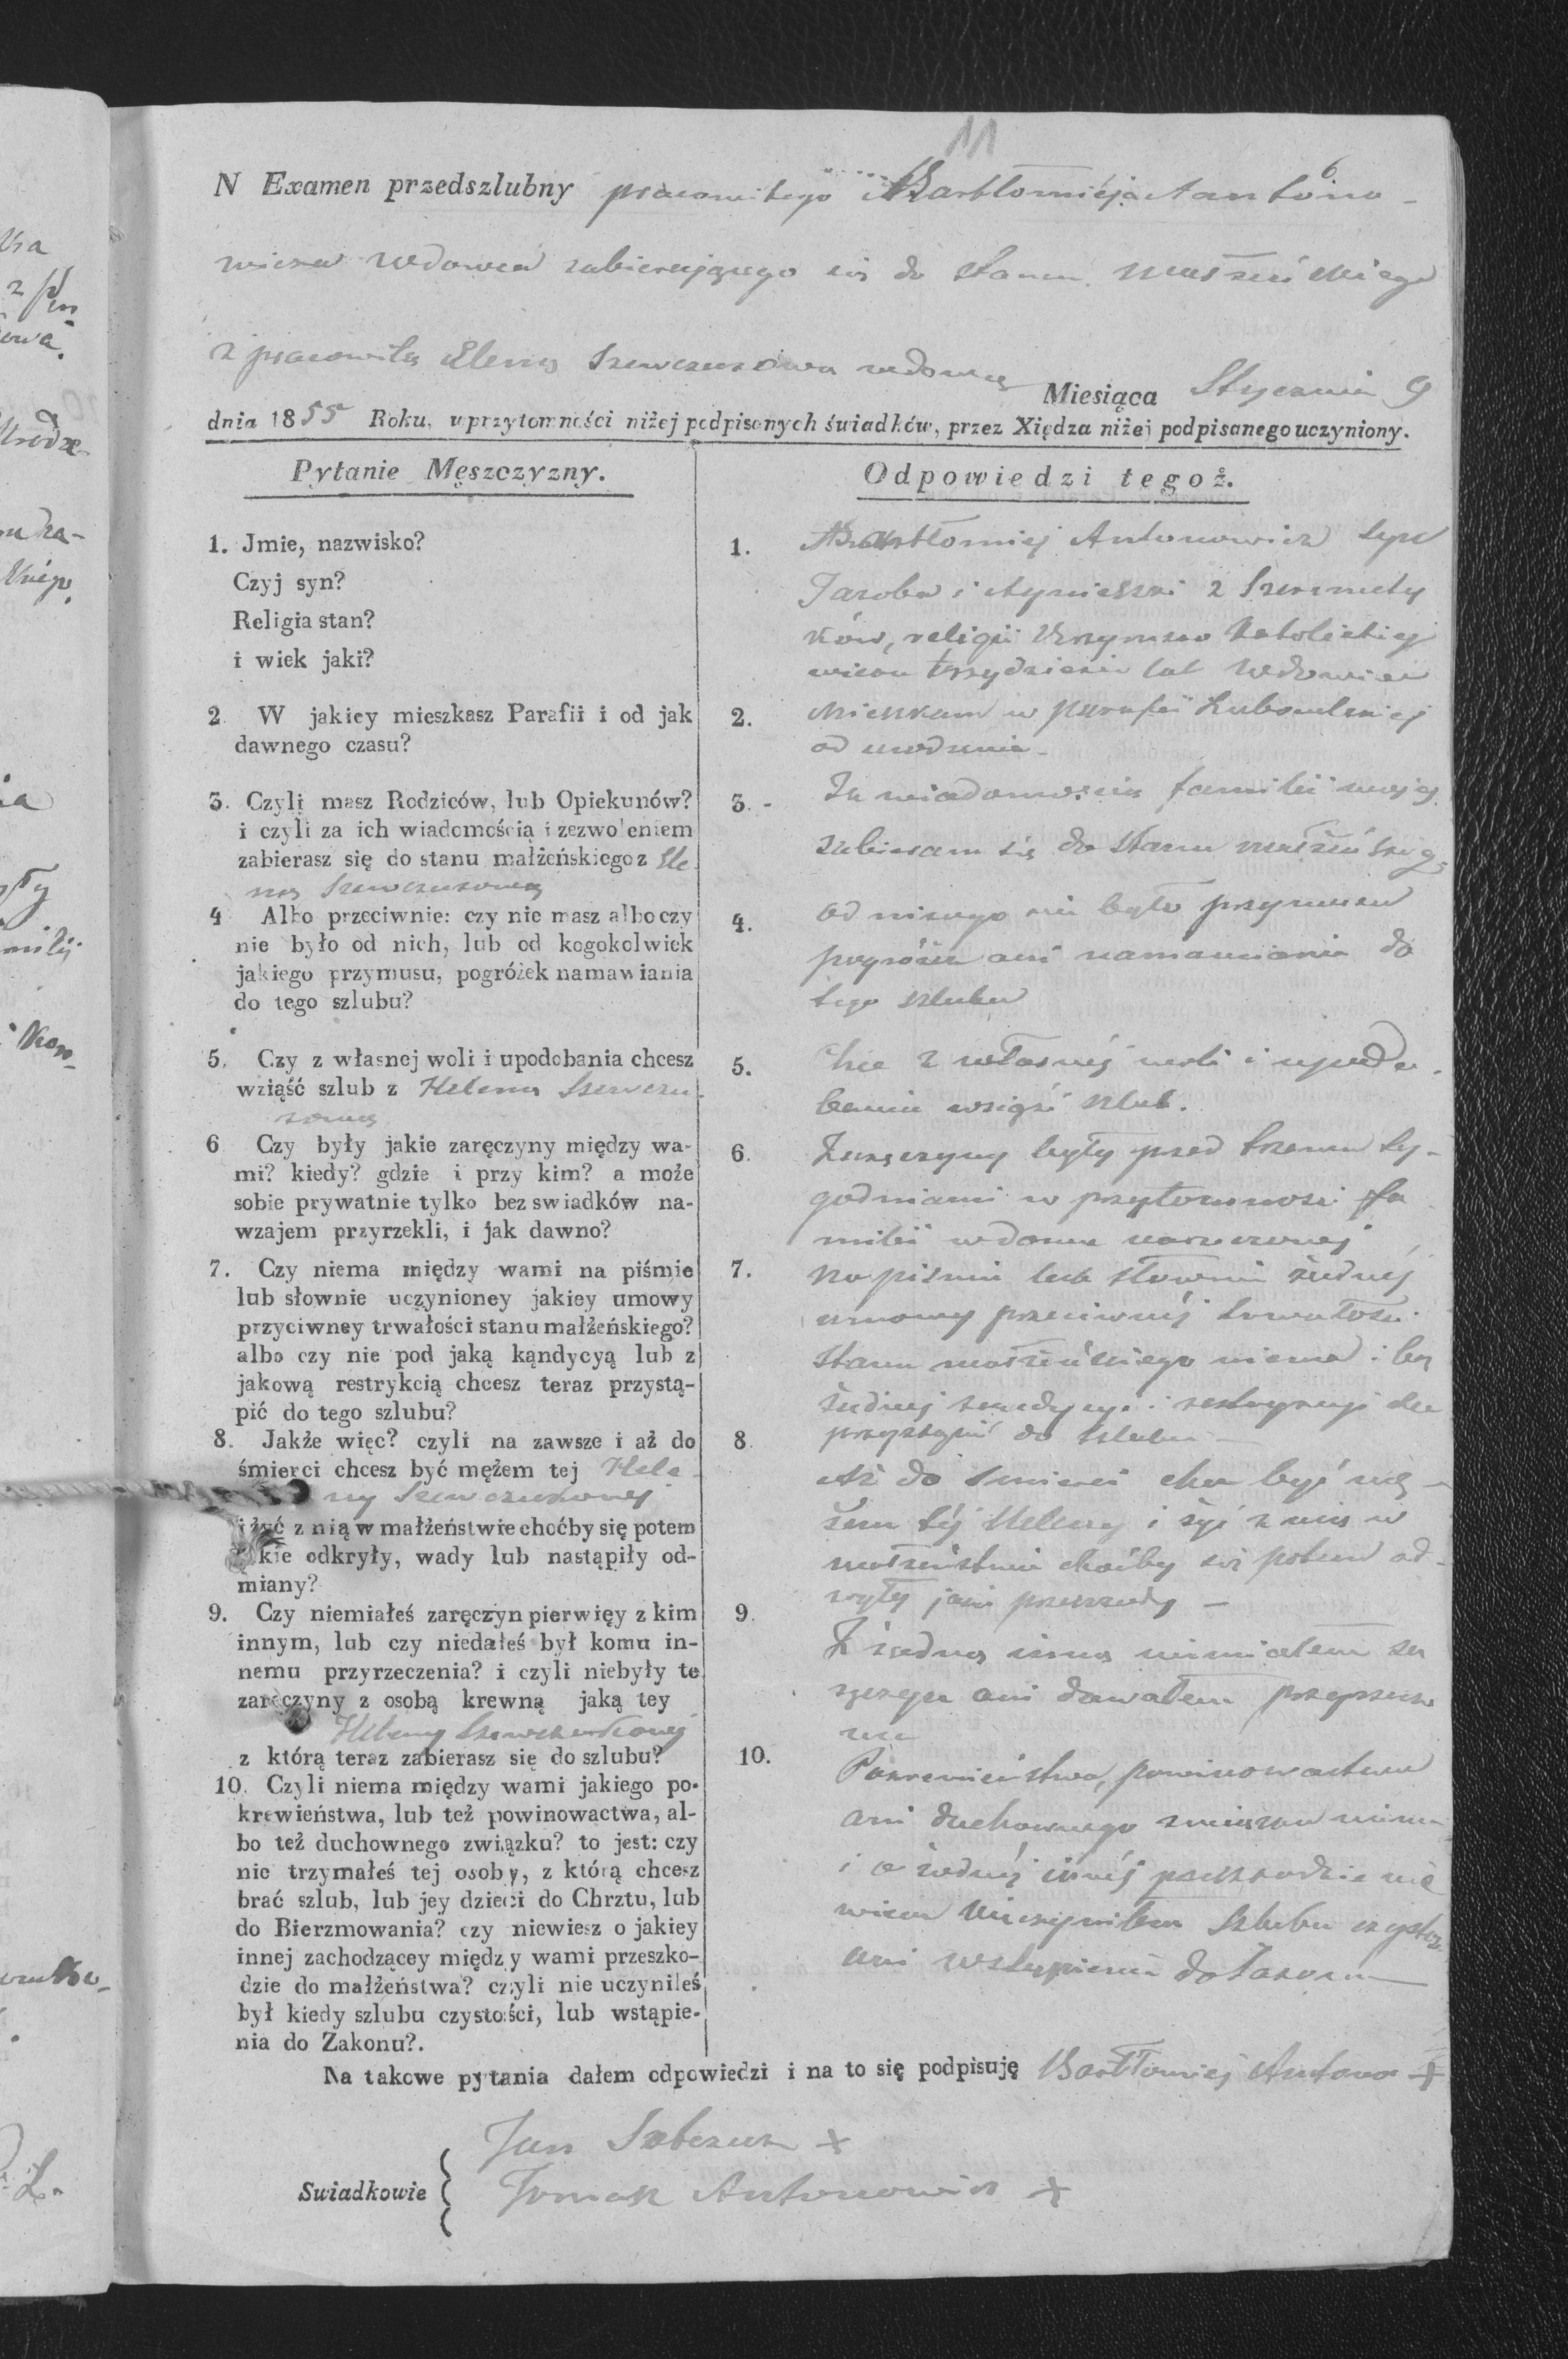 11
6
N Examen przedszlubny pracowitego Bartłomieja Antono-
wicza Wdowca zabierającego się do stanu małżeńskiego
z pracowitą Eleną Szewczukową wdową
Miesiąca Stycznia 9
dnia 1855 Roku, w przytomności niżej podpisanych świadków, przez Xiędza niżej podpisanego uczyniony.
Pytanie Męszczyzny.
1. Jmie, nazwisko?
Czyj syn?
Religia stan?
i wiek jaki?
2. W jakiey mieszkasz Parafii i od jak
dawnego czasu?
3. Czyli masz Rodziców, lub Opiekunów?
i czyli za ich wiadomością i zezwoleniem
zabierasz się do stanu małżeńskiego z Ele-
ną Szewczukową
4 Albo przeciwnie: czy nie masz albo czy
nie było od nich, lub od kogokolwiek
jakiego przymusu, pogróżek namawiania
do tego szlubu?
5. Czy z własnej woli i upodobania chcesz
wziąść szlub z Heleną Szewczu-
kową
6 Czy były jakie zaręczyny między wa-
mi? kiedy? gdzie i przy kim? a może
sobie prywatnie tylko bez swiadków na-
wzajem przyrzekli, i jak dawno?
7. Czy niema między wami na piśmie
lub słownie uczynioney jakiey umowy
przyciwney trwałości stanu małżeńskiego?
albo czy nie pod jaką kąndycyą lub z
jakową restrykcią chcesz teraz przystą-
pić do tego szlubu?
8. Jakże więc? czyli na zawsze i aż do
śmierci chcesz być mężem tej Hele-
ny Szewczukowej
i żyć z nią w małżeństwie choćby się potem
kie odkryły, wady lub nastąpiły od-
miany?
9. Czy niemiałeś zaręczyn pierwięy z kim
innym, lub czy niedałeś był komu in-
nemu przyrzeczenia? i czyli niebyły te
zaręczyny z osobą krewną jaką tey
Heleny Szewczukowej
z którą teraz zabierasz się do szlubu?
10. Czyli niema między wami jakiego po-
krewieństwa, lub też powinowactwa, al-
bo też duchownego związku? to jest: czy
nie trzymałeś tej osoby, z którą chcesz
brać szlub, lub jey dzieci do Chrztu, lub
do Bierzmowania? czy niewiesz o jakiey
innej zachodzącey między wami przeszko-
dzie do małżeństwa? czyli nie uczyniłeś
był kiedy szlubu czystości, lub wstąpie-
nia do Zakonu?.
Odpowiedzi tegoż.
1. Bartłomiej Antonowicz syn
Jakoba i Agnieszki z Szeremety
ków, religii Rzymsko Katolickiej
wieku trzydzieści lat Wdowiec
2. Mieszkam w parafii
od urodzenia -
3. - Za wiadomością familii mojej
zabieram się do stanu małżeńskiego
4. od nikogo nie było przymusu
pogróżek ani namawiania do
tego szlubu
5. Chce z własnej woli i upodo-
bania wziąść szlub.
6. Zaręczyny były przed trzema ty-
godniami w przytomności fa
milii w domu narzeczonej
7. Na piśmie lub słownie żadnej
umowy przeciwnej trwałości
stanu małżeńskiego niema i bez
żadnej kondycyi i restrykcyi chce
przystąpić do szlubu -
8. Aż do śmierci chce być mę-
żem téj Heleny i żyć z nią w
małżeństwie choćby się potem od-
kryły jakie przeszkody -
9. Z żadną inną niemiałem za
ręczyn ani dawałem przyrzecze
nia
10. Pokrewieństwa, powinowactwa
ani duchownego związku niema
i o żadnej innej przeszkodzie nie
wiem Nieczyniłem Szlubu czystoś.
ani wstąpienia do Zakonu -
Na takowe pytania dałem odpowiedzi i na to się podpisuję Bartłomiej Antono +
Jan +
Swiadkowie { Tomasz Antonowicz +